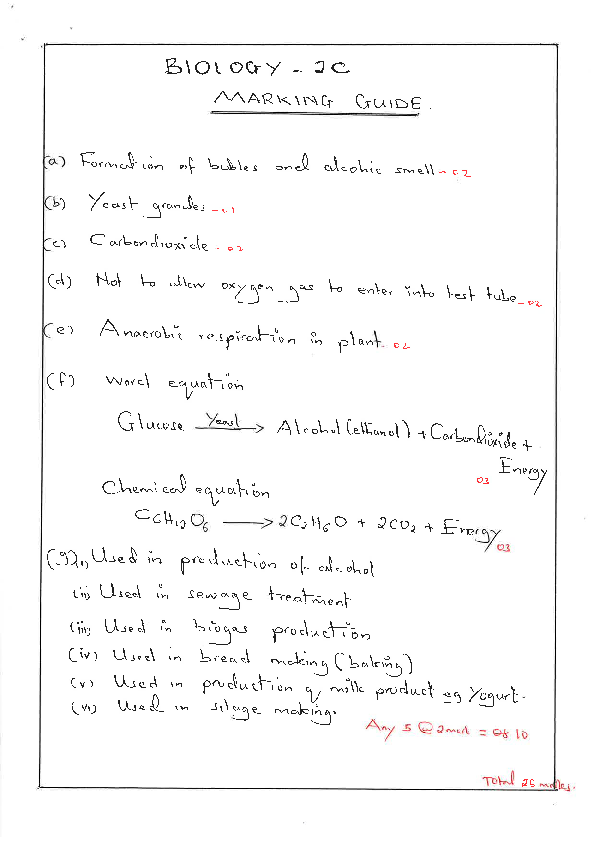 BIOLOGY - 2C
MARKING GUIDE.
(a) Formation of bubles and alcohic smell - 02
(b) Yeast granules - 01
(c) Carbondioxide - 02
(d) Not to allow oxygen gas to enter into test tube - 02
(e) Anaerobic respiration in plant. 02
(f) Word equation
Glucose Yeast → Alcohol (ethanol) + Carbondioxide +
Energy
03
Chemical equation
C6H12O6 → 2C2H6O + 2CO2 + Energy
03
(g) i) Used in production of alcohol
(ii) Used in sewage treatment
(iii) Used in biogas production
(iv) Used in bread making (baking)
(v) Used in production of milk product eg Yogurt.
(vi) Used in silage making.
Any 5 @ 2 mark = 10
Total 25 marks.